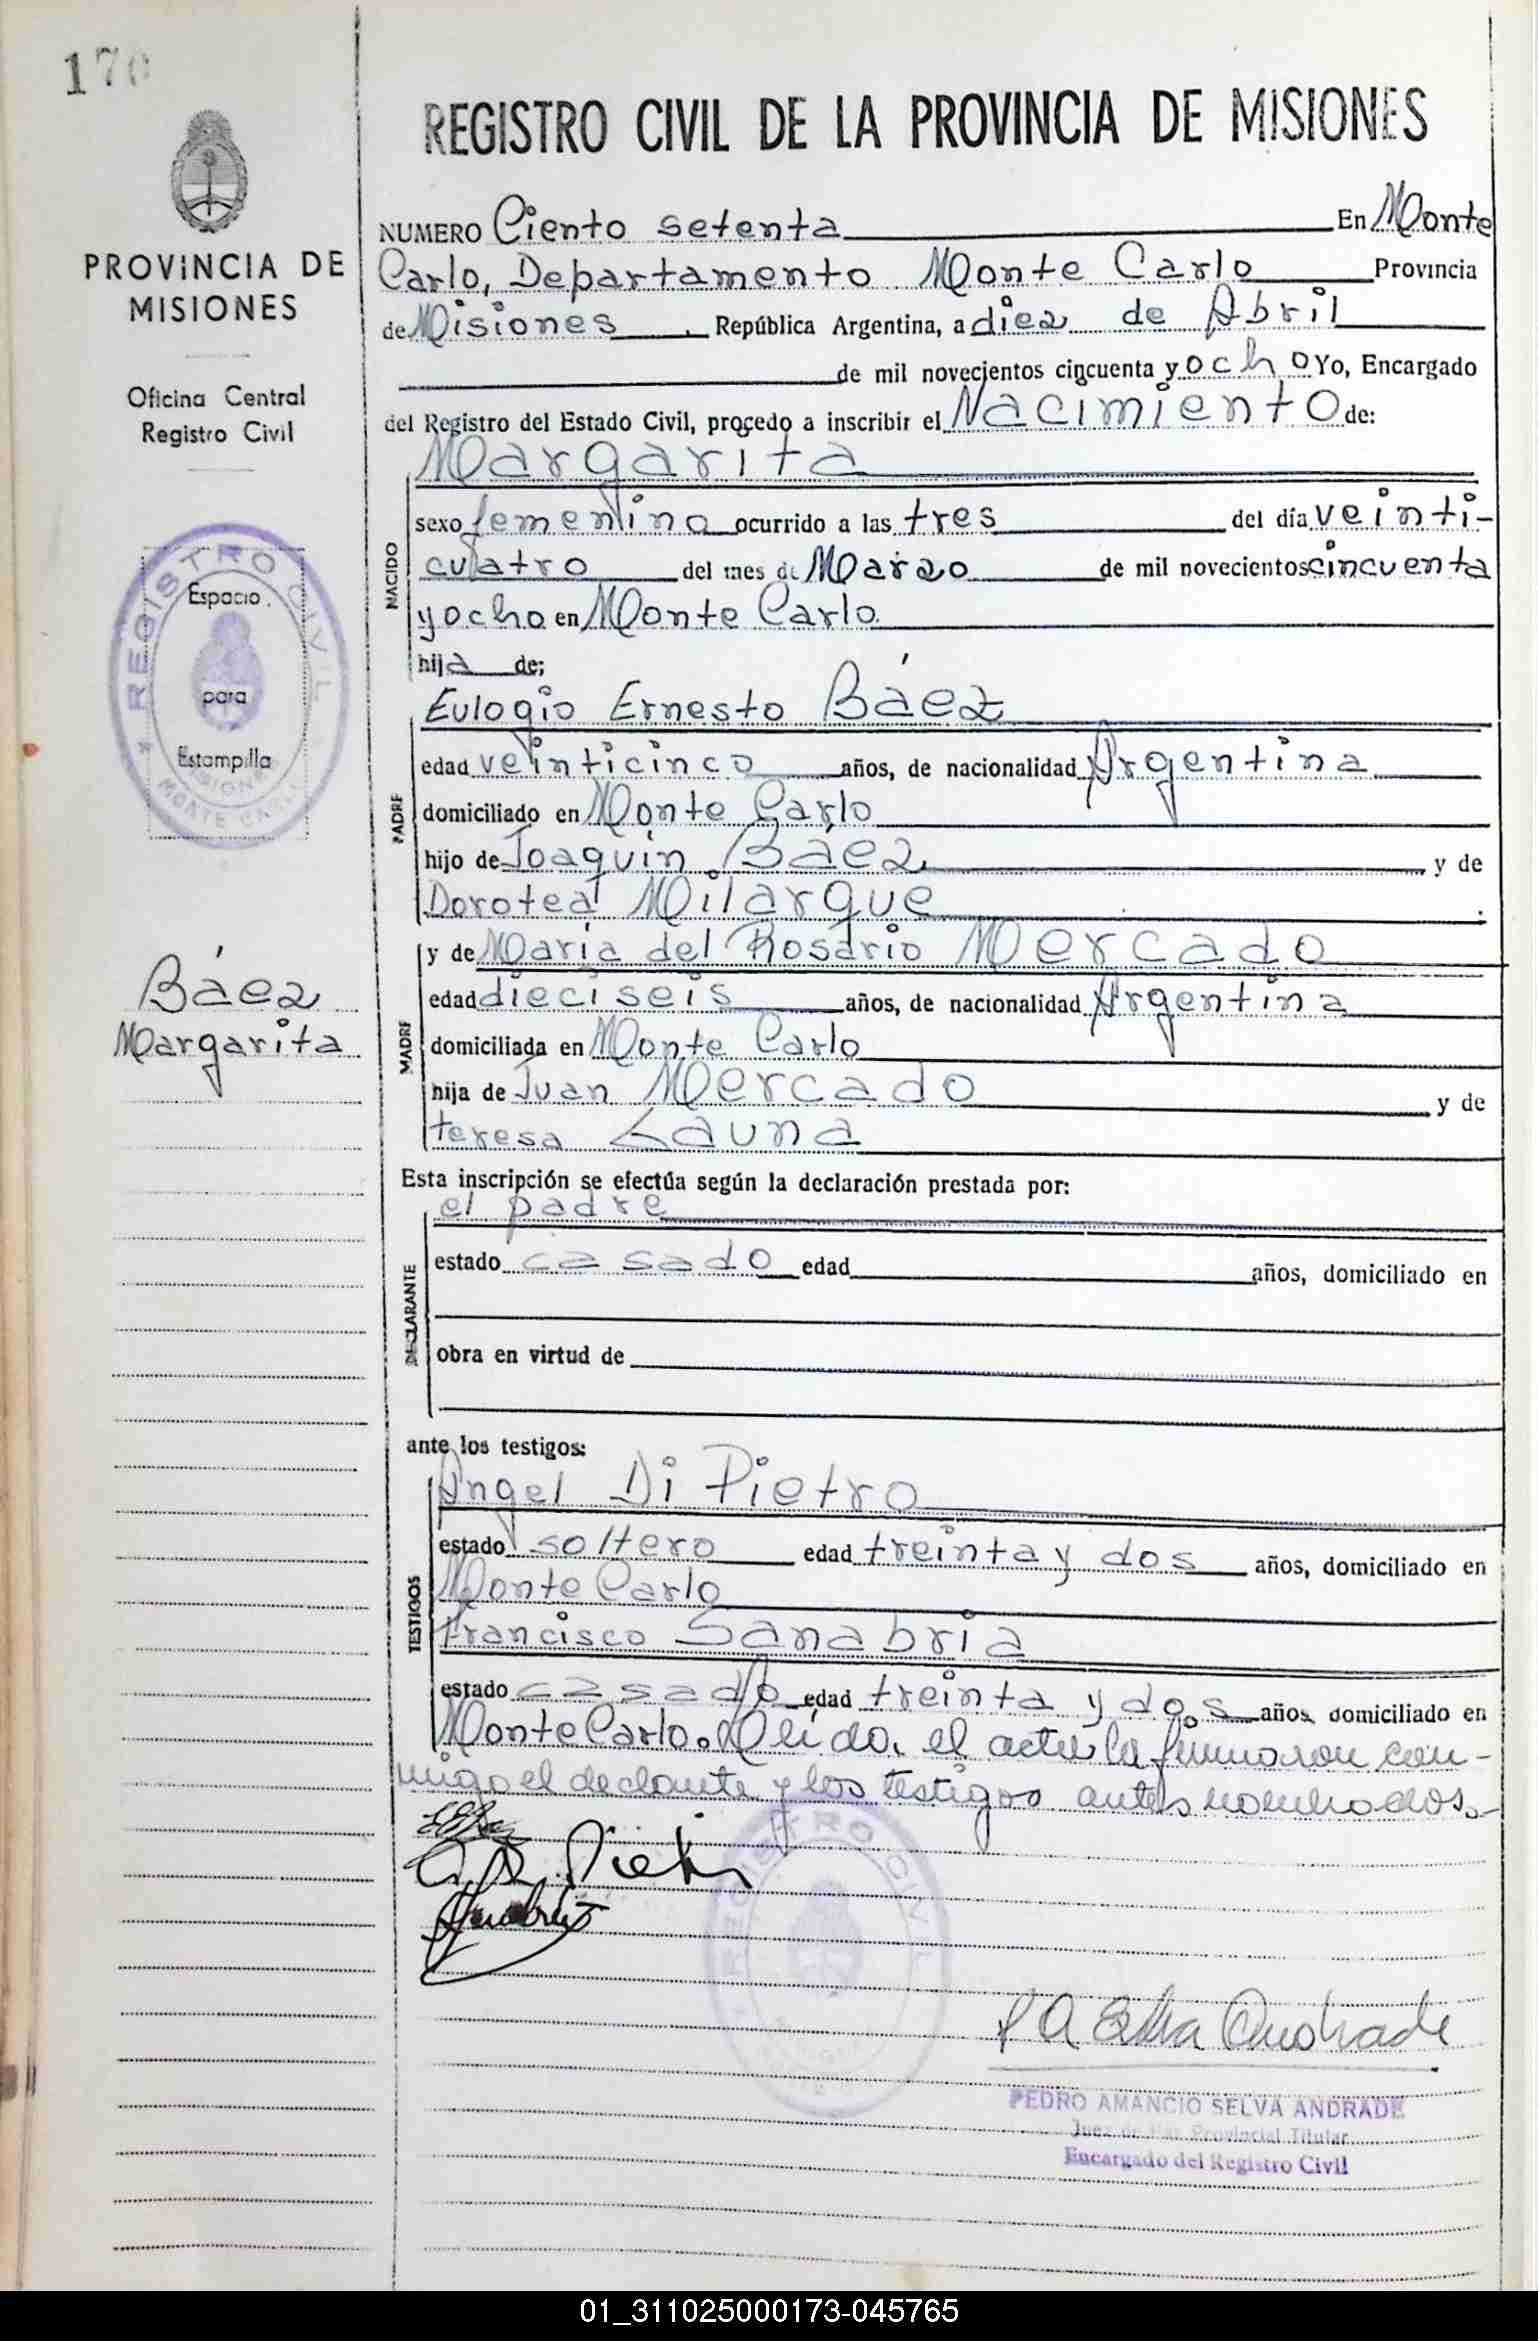 170
PROVINCIA DE
MISIONES
Oficina Central
Registro Civil
REGISTRO CIVIL
Espacio
para
Estampilla
MISIONES
MONTE CARLO
Báez
Margarita
REGISTRO CIVIL DE LA PROVINCIA DE MISIONES
NUMERO Ciento setenta En Monte
Carlo, Departamento Monte Carlo Provincia
de Misiones, República Argentina, a diez de Abril
de mil novecientos cincuenta y ocho Yo, Encargado
del Registro del Estado Civil, procedo a inscribir el Nacimiento de:
Margarita
NACIDO
sexo femenino ocurrido a las tres del día veinti-
cuatro del mes de Marzo de mil novecientos cincuenta
y ocho en Monte Carlo
hija de;
Eulogio Ernesto Báez
PADRE
edad veinticinco años, de nacionalidad Argentina
domiciliado en Monte Carlo
hijo de Joaquín Báez y de
Dorotea Milarque
y de María del Rosario Mercado
MADRE
edad dieciseis años, de nacionalidad Argentina
domiciliada en Monte Carlo
hija de Juan Mercado y de
teresa Launa
Esta inscripción se efectúa según la declaración prestada por:
el padre
DECLARANTE
estado casado edad años, domiciliado en
obra en virtud de
ante los testigos:
Angel Di Pietro
TESTIGOS
estado soltero edad treinta y dos años, domiciliado en
Monte Carlo
Francisco Sanabria
estado casado edad treinta y dos años, domiciliado en
Monte Carlo. Leída, el acta la firmaron con-
migo el declante y los testigos antes nombrados.-
REGISTRO CIVIL
P A Selva Andrade
PEDRO AMANCIO SELVA ANDRADE
Juez de Paz Provincial Titular
Encargado del Registro Civil
01_311025000173-045765